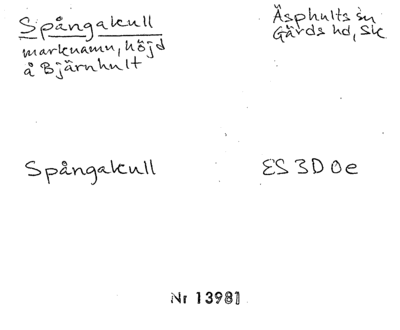 Spångakull
marknamn, höjd
å Bjärnhult
Äsphults sn
Gärds hd, Sk
Spångakull
ES 3D 0e
Nr 13981